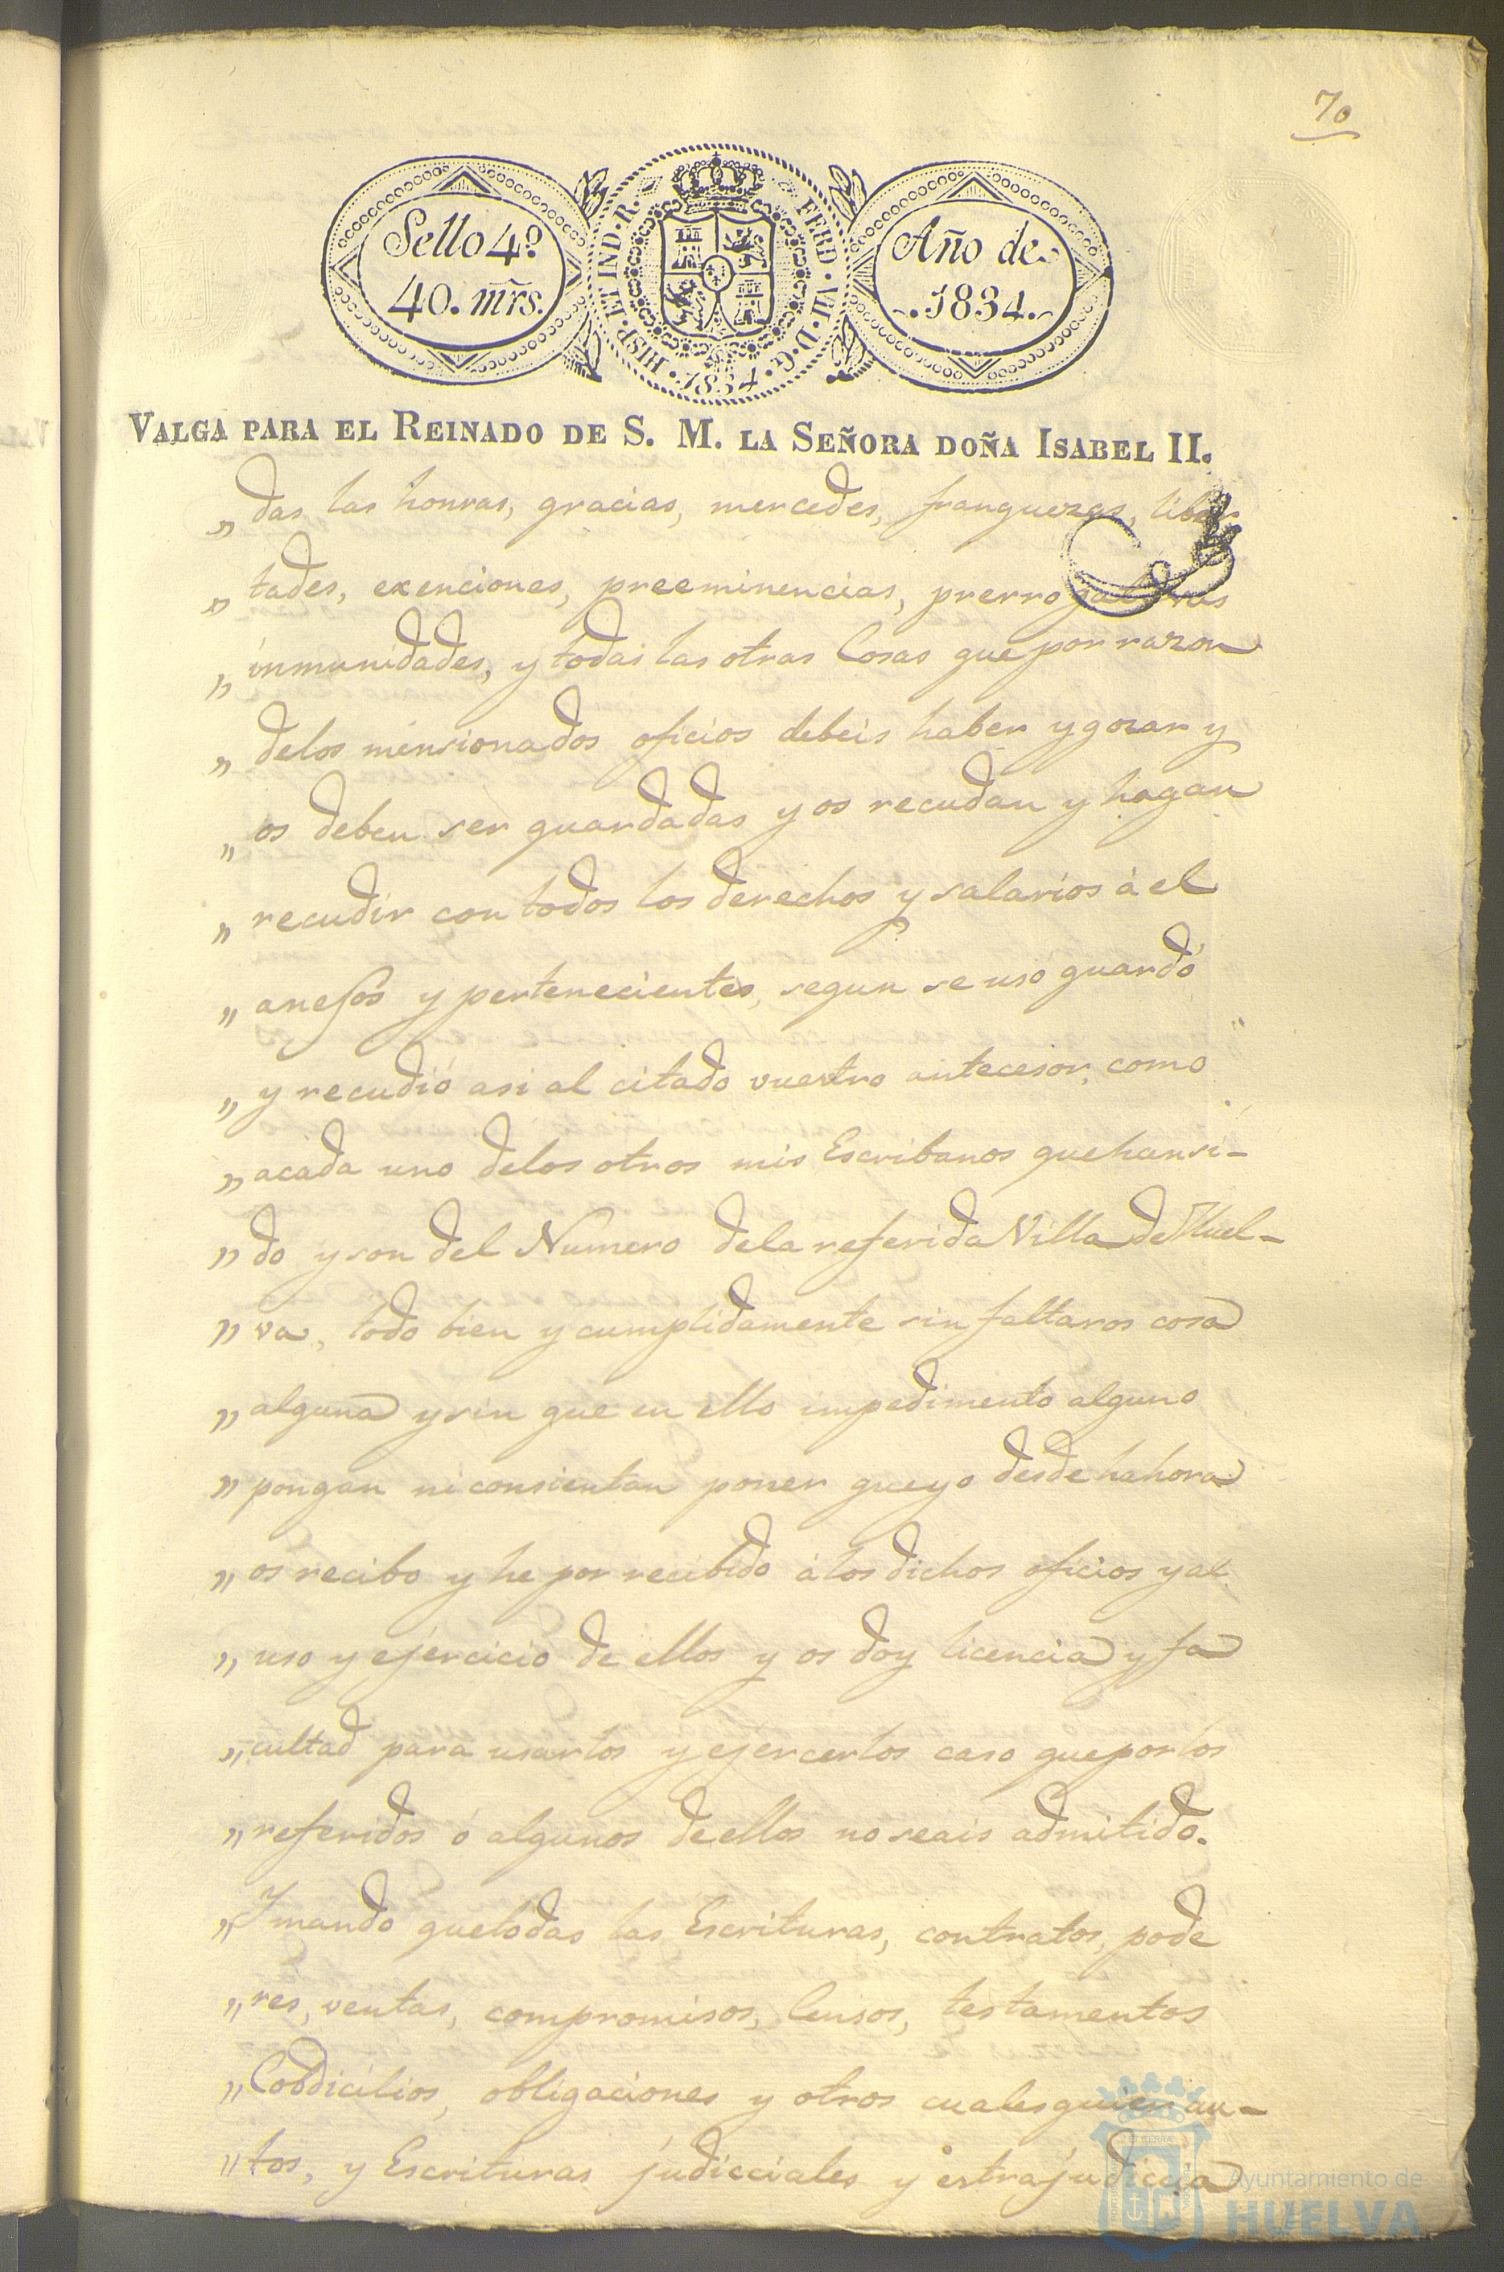 70
Sello 4º
40. mrs.
HISP. ET IND. R.
FERD. VII. D. G.
1834.
Año de
1834.
VALGA PARA EL REINADO DE S. M. LA SEÑORA DOÑA ISABEL II.
„ das las honras, gracias, mercedes, franquezas, liber
„ tades, exenciones, preeminencias, prerrogativas
„ inmunidades, y todas las otras Cosas que por razon
„ delos mensionados oficios debeis haber y gozar y
„ os deben ser guardadas y os recudan y hagan
„ recudir con todos los derechos y salarios á el
„ anesos y pertenecientes, segun se usó guardó
„ y recudió asi al citado vuestro antecesor, como
„ acada uno delos otros mis Escribanos que han si-
„ do y son del Numero dela referida Villa de Huel-
„ va, todo bien y cumplidamente sin faltaros cosa
„ alguna y sin que en ello impedimento alguno
„ pongan ni consientan poner que yo desde hahora
„ os recibo y he por recibido á los dichos oficios y al
„ uso y ejercicio de ellos y os doy licencia y fa
„ cultad para usarlos y ejercerlos caso que por los
„ referidos ó algunos de ellos no seais admitido.
„ Y mando que todas las Escrituras, contratos, pode
„ res, ventas, compromisos, Censos, testamentos
„ Cobdicilios, obligaciones y otros cualesquier au-
„ tos, y Escrituras judicciales y estrajudiccia
Ayuntamiento de
HUELVA